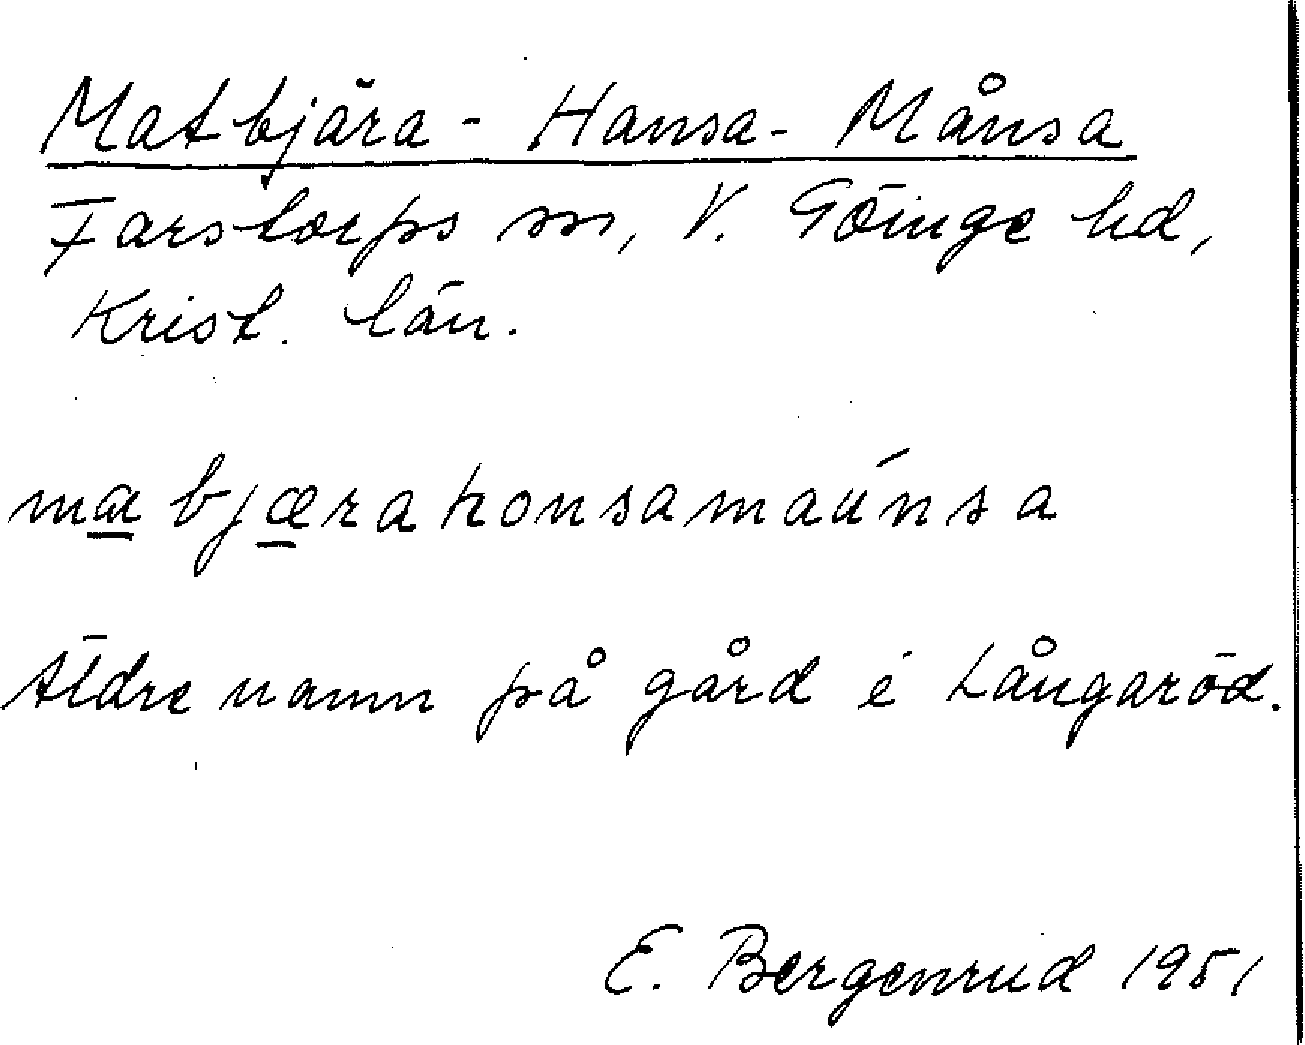 Matbjära - Hansa - Månsa
Farstorps sn, V. Göinge hd,
Krist. län.
mabjærahonsamaúnsa
Äldre namn på gård i Långaröd.
E. Bergenrud 1951